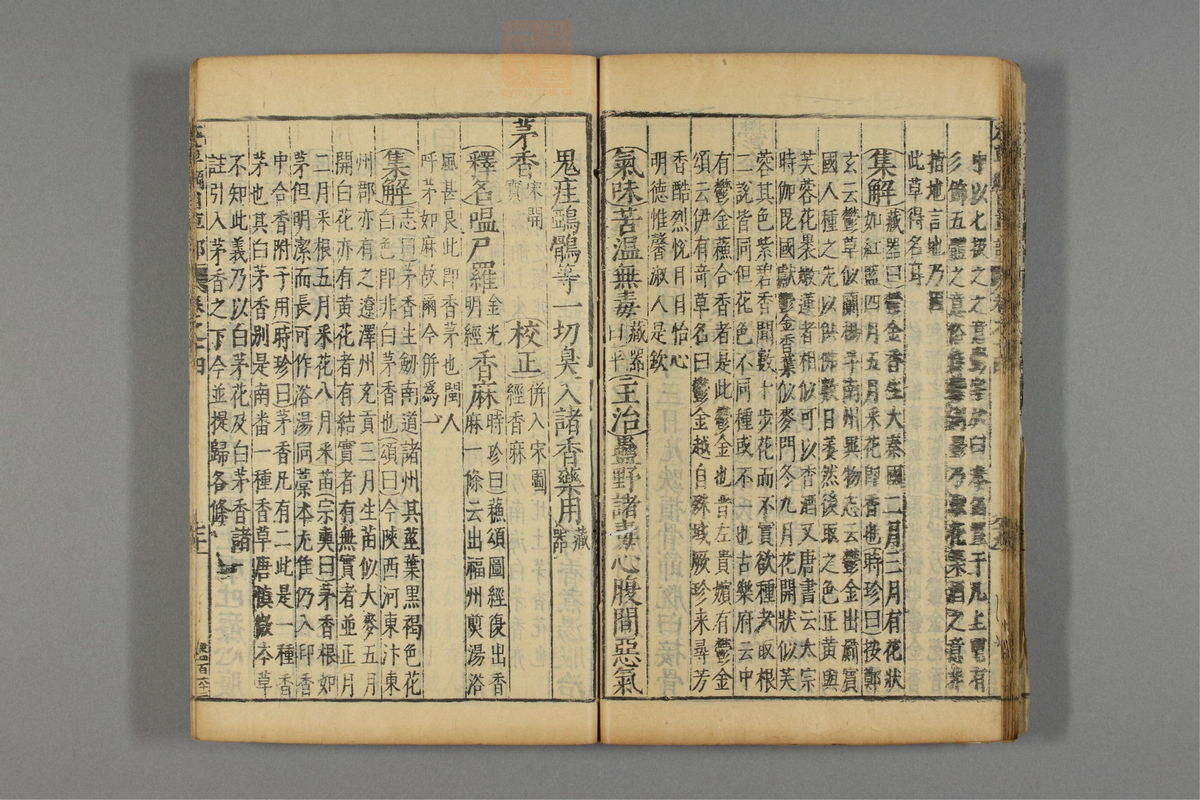 此草得名耳
集解 藏器曰鬱金香生大秦國二月三月有花狀
如紅藍四月五月采花即香也時珍曰按鄭
玄云鬱草似蘭楊孚南州異物志云鬱金出罽賓
國人種之先以供佛數日萎然後取之色正黃與
芙蓉花裹嫩蓮者相似可以香酒又唐書云太宗
時伽毘國獻鬱金香葉似麥門冬九月花開狀似芙
蓉其色紫碧香聞數十步花而不實欲種者取根
二說皆同但花色不同種或不一也古樂府云中
有鬱金蘇合香者是此鬱金也晉左貴嬪有鬱金
頌云伊有奇草名曰鬱金越自殊域厥珍來尋芳
香酷烈悅目怡心
明德惟馨淑人是欽
氣味苦溫無毒 藏器曰平 主治蠱野諸毒心腹間惡氣
鬼疰鴉鶻等一切臭入諸香藥用 藏器
茅香 宋開寶 校正 併入宋圖經香麻
釋名唵尸羅 金光明經 香麻 時珍曰蘇頌圖經復出香
麻一條云出福州煎湯浴
風甚良此即香茅也閩人
呼茅如麻故爾今併爲一
集解 志曰茅香生劒南道諸州其莖葉黑褐色花
白色即非白茅香也頌曰今陝西河東汴東
州郡亦有之遼澤州充貢三月生苗似大麥五月
開白花亦有黃花者有結實者有無實者並正月
二月采根五月采花八月采苗宗奭曰茅香根如
茅但明潔而長可作浴湯同藁本尤佳仍入印香
中合香附子用時珍曰茅香凡有二此是一種香
茅也其白茅香別是南番一種香草唐愼微本草
不知此義乃以白茅花及白茅香諸
註引入茅香之下今並提歸各條